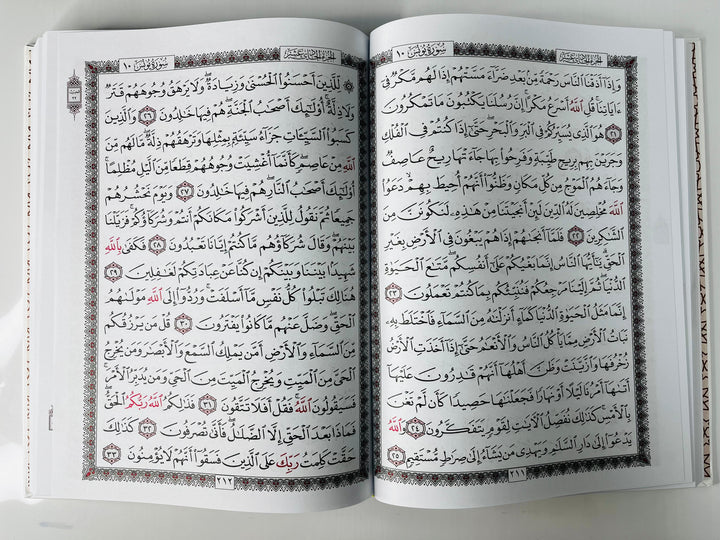 سُورَةُ يُونُسَ ١٠
الجُزءُ الحَادِي عَشَرَ
وَإِذَآ أَذَقْنَا ٱلنَّاسَ رَحْمَةً مِّنۢ بَعْدِ ضَرَّآءَ مَسَّتْهُمْ إِذَا لَهُم مَّكْرٌ فِىٓ
ءَايَاتِنَا ۚ قُلِ ٱللَّهُ أَسْرَعُ مَكْرًا ۚ إِنَّ رُسُلَنَا يَكْتُبُونَ مَا تَمْكُرُونَ
٢١ هُوَ ٱلَّذِى يُسَيِّرُكُمْ فِى ٱلْبَرِّ وَٱلْبَحْرِ ۖ حَتَّىٰٓ إِذَا كُنتُمْ فِى ٱلْفُلْكِ
وَجَرَيْنَ بِهِم بِرِيحٍ طَيِّبَةٍ وَفَرِحُوا۟ بِهَا جَآءَتْهَا رِيحٌ عَاصِفٌ
وَجَآءَهُمُ ٱلْمَوْجُ مِن كُلِّ مَكَانٍ وَظَنُّوٓا۟ أَنَّهُمْ أُحِيطَ بِهِمْ ۙ دَعَوُا۟
ٱللَّهَ مُخْلِصِينَ لَهُ ٱلدِّينَ لَئِنْ أَنجَيْتَنَا مِنْ هَٰذِهِۦ لَنَكُونَنَّ مِنَ
ٱلشَّٰكِرِينَ ٢٢ فَلَمَّآ أَنجَىٰهُمْ إِذَا هُمْ يَبْغُونَ فِى ٱلْأَرْضِ بِغَيْرِ
ٱلْحَقِّ ۗ يَٰٓأَيُّهَا ٱلنَّاسُ إِنَّمَا بَغْيُكُمْ عَلَىٰٓ أَنفُسِكُم ۖ مَّتَٰعَ ٱلْحَيَوٰةِ
ٱلدُّنْيَا ۖ ثُمَّ إِلَيْنَا مَرْجِعُكُمْ فَنُنَبِّئُكُم بِمَا كُنتُمْ تَعْمَلُونَ ٢٣
إِنَّمَا مَثَلُ ٱلْحَيَوٰةِ ٱلدُّنْيَا كَمَآءٍ أَنزَلْنَٰهُ مِنَ ٱلسَّمَآءِ فَٱخْتَلَطَ بِهِۦ
نَبَاتُ ٱلْأَرْضِ مِمَّا يَأْكُلُ ٱلنَّاسُ وَٱلْأَنْعَٰمُ حَتَّىٰٓ إِذَآ أَخَذَتِ ٱلْأَرْضُ
زُخْرُفَهَا وَٱزَّيَّنَتْ وَظَنَّ أَهْلُهَآ أَنَّهُمْ قَٰدِرُونَ عَلَيْهَآ
أَتَىٰهَآ أَمْرُنَا لَيْلًا أَوْ نَهَارًا فَجَعَلْنَٰهَا حَصِيدًا كَأَن لَّمْ تَغْنَ
بِٱلْأَمْسِ ۚ كَذَٰلِكَ نُفَصِّلُ ٱلْءَايَٰتِ لِقَوْمٍ يَتَفَكَّرُونَ ٢٤ وَٱللَّهُ
يَدْعُوٓا۟ إِلَىٰ دَارِ ٱلسَّلَٰمِ وَيَهْدِى مَن يَشَآءُ إِلَىٰ صِرَٰطٍ مُّسْتَقِيمٍ ٢٥
٢١١
سُورَةُ يُونُسَ ١٠
الجُزءُ الحَادِي عَشَرَ
لِّلَّذِينَ أَحْسَنُوا۟ ٱلْحُسْنَىٰ وَزِيَادَةٌ ۖ وَلَا يَرْهَقُ وُجُوهَهُمْ قَتَرٌ
وَلَا ذِلَّةٌ ۚ أُو۟لَٰٓئِكَ أَصْحَٰبُ ٱلْجَنَّةِ ۖ هُمْ فِيهَا خَٰلِدُونَ ٢٦ وَٱلَّذِينَ
كَسَبُوا۟ ٱلسَّيِّـَٔاتِ جَزَآءُ سَيِّئَةٍۭ بِمِثْلِهَا وَتَرْهَقُهُمْ ذِلَّةٌ ۖ مَّا لَهُم مِّنَ
ٱللَّهِ مِنْ عَاصِمٍ ۖ كَأَنَّمَآ أُغْشِيَتْ وُجُوهُهُمْ قِطَعًا مِّنَ ٱلَّيْلِ مُظْلِمًا ۚ
أُو۟لَٰٓئِكَ أَصْحَٰبُ ٱلنَّارِ ۖ هُمْ فِيهَا خَٰلِدُونَ ٢٧ وَيَوْمَ نَحْشُرُهُمْ
جَمِيعًا ثُمَّ نَقُولُ لِلَّذِينَ أَشْرَكُوا۟ مَكَانَكُمْ أَنتُمْ وَشُرَكَآؤُكُمْ ۚ فَزَيَّلْنَا
بَيْنَهُمْ ۖ وَقَالَ شُرَكَآؤُهُم مَّا كُنتُمْ إِيَّانَا تَعْبُدُونَ ٢٨ فَكَفَىٰ بِٱللَّهِ
شَهِيدًۢا بَيْنَنَا وَبَيْنَكُمْ إِن كُنَّا عَنْ عِبَادَتِكُمْ لَغَٰفِلِينَ ٢٩
هُنَالِكَ تَبْلُوا۟ كُلُّ نَفْسٍ مَّآ أَسْلَفَتْ ۚ وَرُدُّوٓا۟ إِلَى ٱللَّهِ مَوْلَىٰهُمُ
ٱلْحَقِّ ۖ وَضَلَّ عَنْهُم مَّا كَانُوا۟ يَفْتَرُونَ ٣٠ قُلْ مَن يَرْزُقُكُم
مِّنَ ٱلسَّمَآءِ وَٱلْأَرْضِ أَمَّن يَمْلِكُ ٱلسَّمْعَ وَٱلْأَبْصَٰرَ وَمَن يُخْرِجُ
ٱلْحَىَّ مِنَ ٱلْمَيِّتِ وَيُخْرِجُ ٱلْمَيِّتَ مِنَ ٱلْحَىِّ وَمَن يُدَبِّرُ ٱلْأَمْرَ ۚ
فَسَيَقُولُونَ ٱللَّهُ ۚ فَقُلْ أَفَلَا تَتَّقُونَ ٣١ فَذَٰلِكُمُ ٱللَّهُ رَبُّكُمُ ٱلْحَقُّ ۖ
فَمَاذَا بَعْدَ ٱلْحَقِّ إِلَّا ٱلضَّلَٰلُ ۖ فَأَنَّىٰ تُصْرَفُونَ ٣٢ كَذَٰلِكَ
حَقَّتْ كَلِمَتُ رَبِّكَ عَلَى ٱلَّذِينَ فَسَقُوٓا۟ أَنَّهُمْ لَا يُؤْمِنُونَ ٣٣
٢١٢